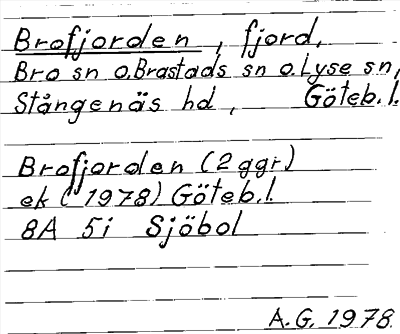 Brofjorden, fjord,
Bro sn o. Brastads sn o. Lyse sn,
Stångenäs hd, Göteb. l.
Brofjorden (2 ggr)
ek (1978) Göteb. l.
8A 5i Sjöbol
A.G. 1978.